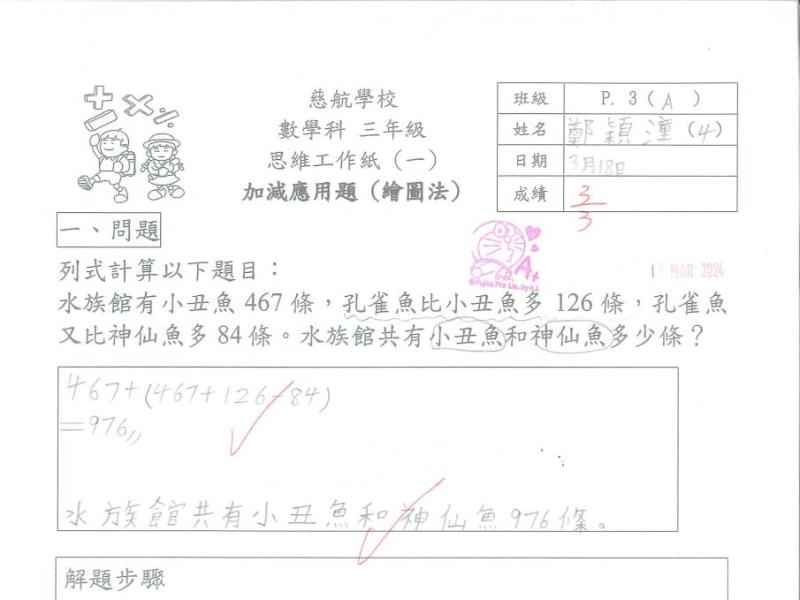 慈航學校
數學科 三年級
思維工作紙（一）
加減應用題（繪圖法）
班級 P. 3（A）
姓名 鄭穎潼（4）
日期 3月18日
成績 3/3
一、問題
A+
©Fujiko Pro Lic. by A.I.
18 MAR 2024
列式計算以下題目：
水族館有小丑魚 467 條，孔雀魚比小丑魚多 126 條，孔雀魚
又比神仙魚多 84 條。水族館共有小丑魚和神仙魚多少條？
467+(467+126-84)
=976
水族館共有小丑魚和神仙魚976條。
解題步驟